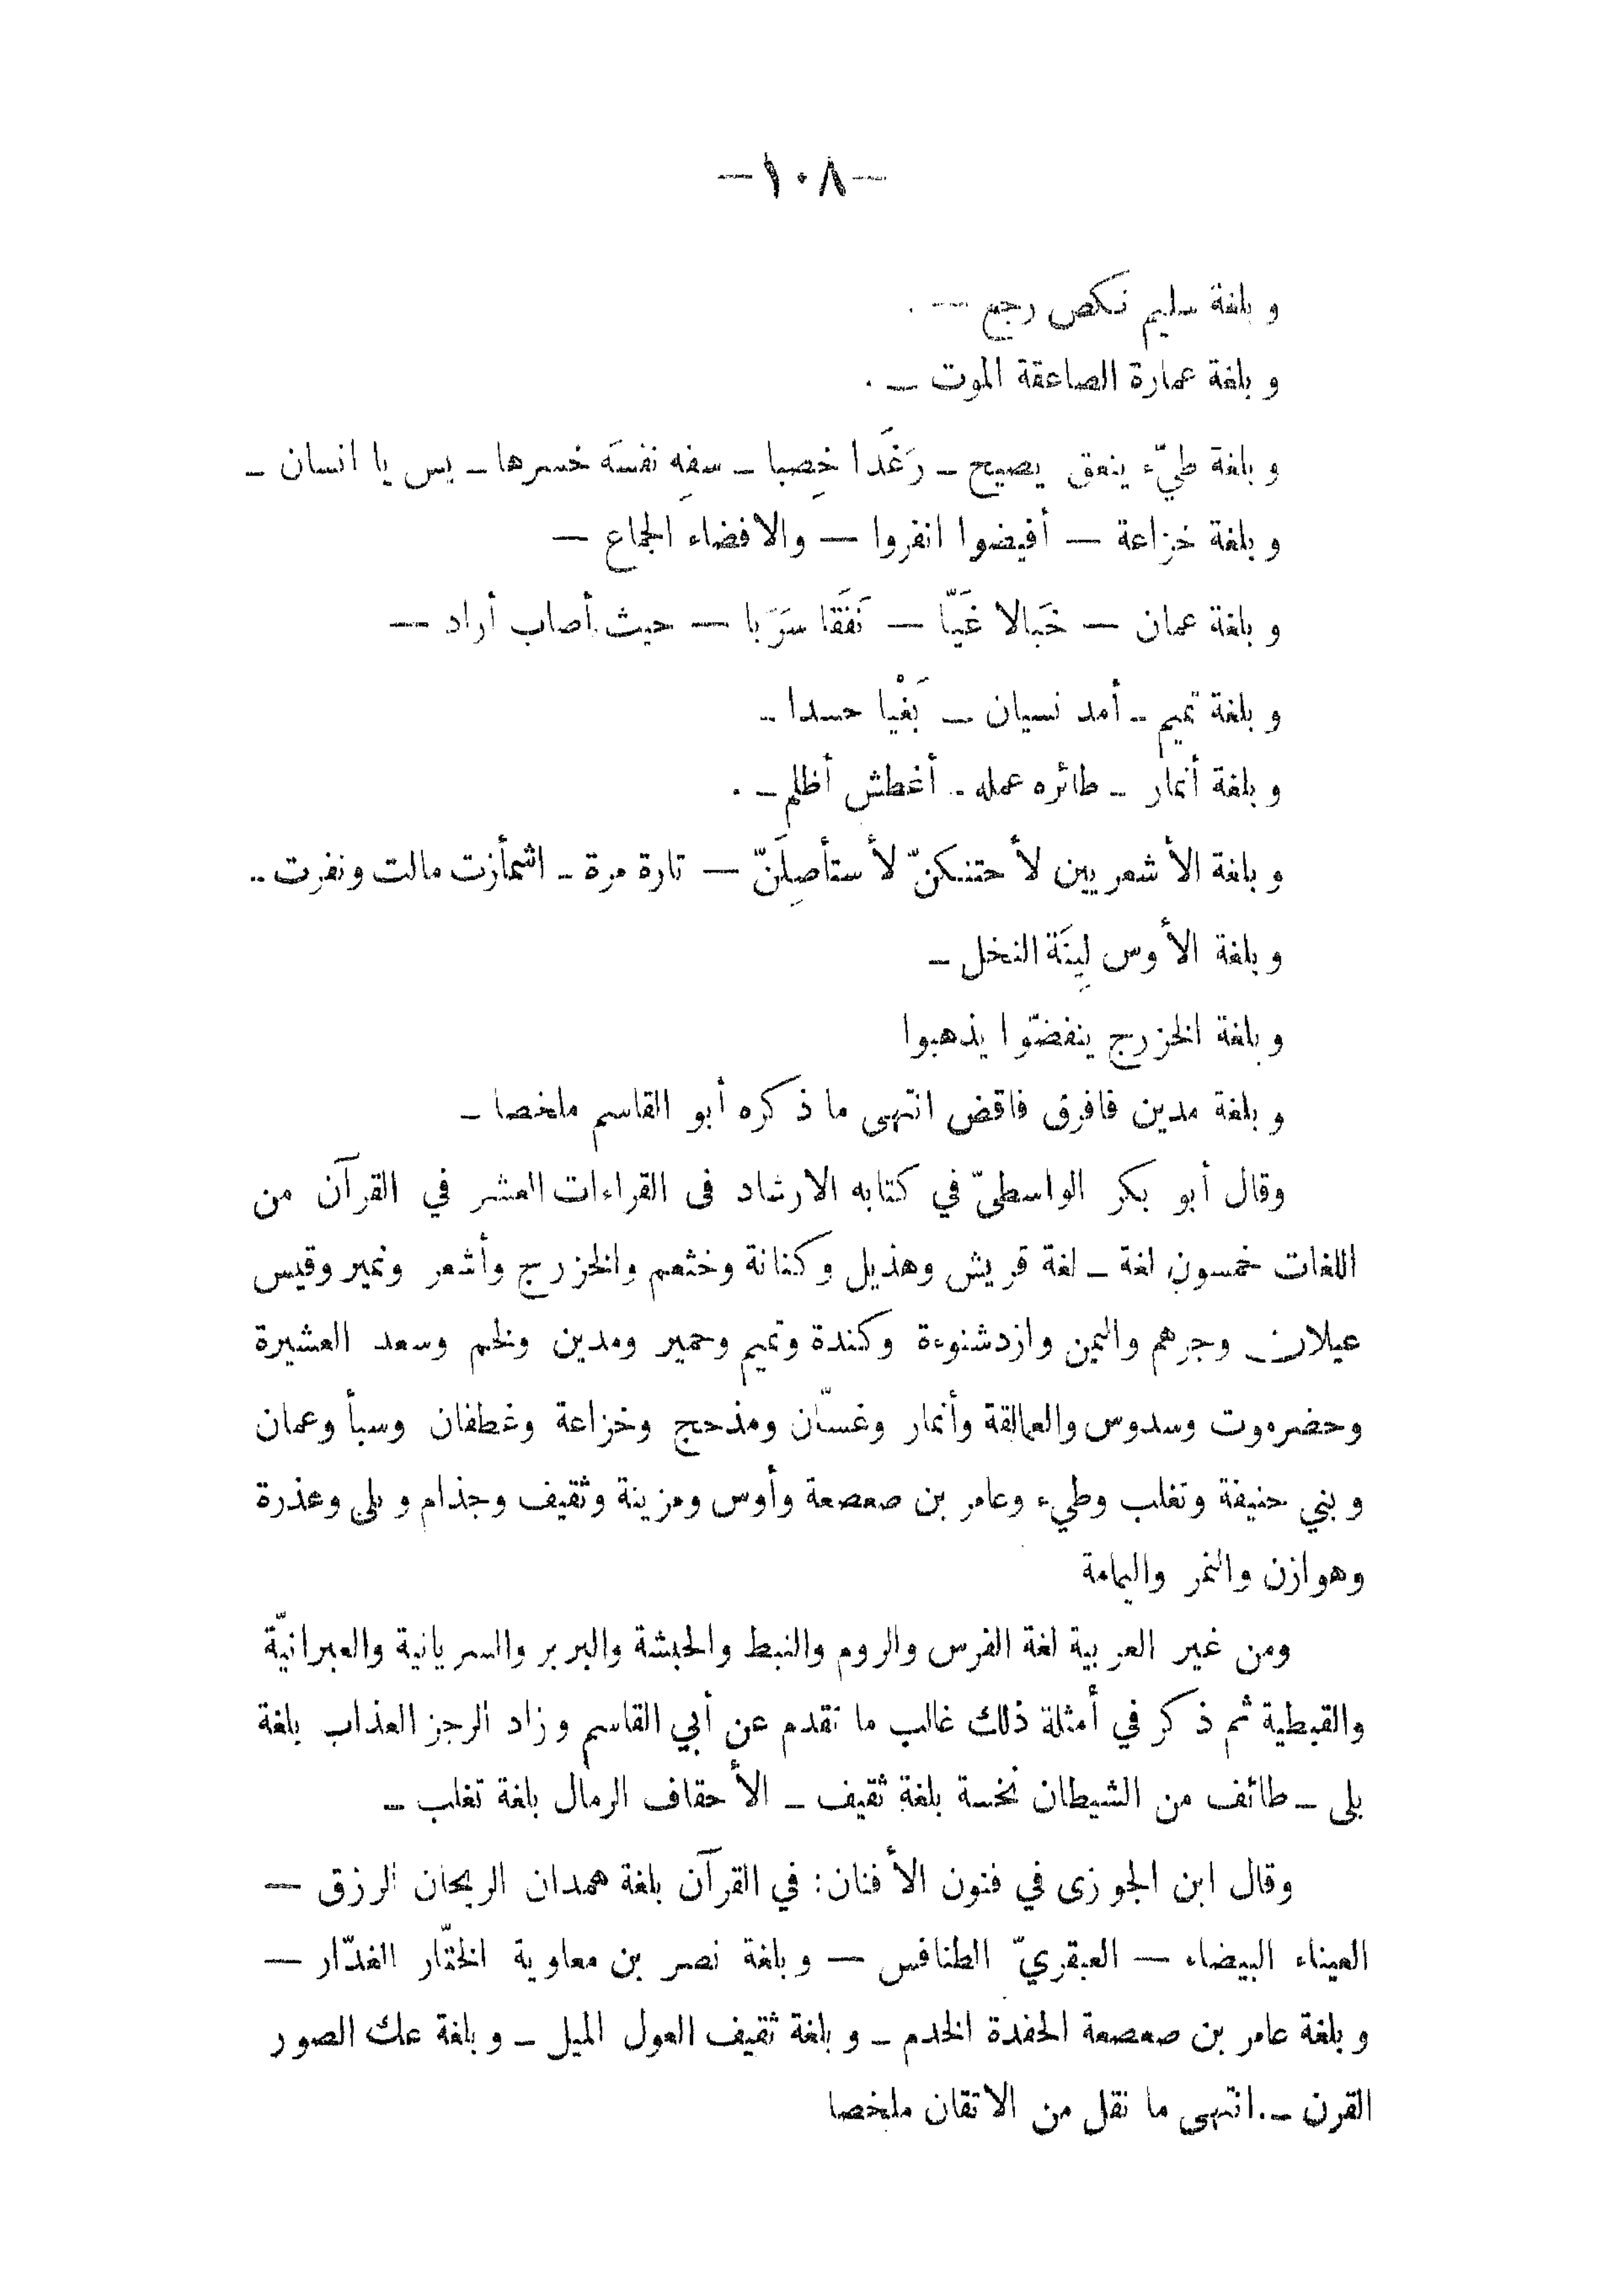 —١٠٨—
وبلغة سليم نكص رجع — .
وبلغة عمارة الصاعقة الموت — .
وبلغة طيّء ينعق يصيح — رَغَدا خِصبا — سفِه نفسَه خسرها — يس يا انسان —
وبلغة خزاعة — أفيضوا انفروا — والافضاء الجماع —
وبلغة عمان — خَبالا غَيّا — نَفَقا سَرَبا — حيث أصاب أراد —
وبلغة تميم — أمد نسيان — بَغْيا حسدا —
وبلغة أنمار — طائره عمله — أغطش أظلم — .
وبلغة الأشعريين لأحتنكنّ لأستأصِلَنّ — تارة مرة — اشمأزت مالت ونفرت —
وبلغة الأوس لِينَة النخل —
وبلغة الخزرج ينفضّوا يذهبوا
وبلغة مدين فافرق فاقض انتهى ما ذكره أبو القاسم ملخصا —
وقال أبو بكر الواسطىّ في كتابه الارشاد فى القراءات العشر في القرآن من
اللغات خمسون لغة — لغة قريش وهذيل وكنانة وخثعم والخزرج وأشعر ونمير وقيس
عيلان وجرهم واليمن وازدشنوءة وكندة وتميم وحمير ومدين ولخم وسعد العشيرة
وحضرموت وسدوس والعمالقة وأنمار وغسّان ومذحج وخزاعة وغطفان وسبأ وعمان
وبني حنيفة وتغلب وطيء وعامر بن صعصعة وأوس ومزينة وثقيف وجذام وبلى وعذرة
وهوازن والنمر واليمامة
ومن غير العربية لغة الفرس والروم والنبط والحبشة والبربر والسريانية والعبرانيّة
والقبطية ثم ذكر في أمثلة ذلك غالب ما تقدم عن أبي القاسم وزاد الرجز العذاب بلغة
بلى — طائف من الشيطان نخسة بلغة ثقيف — الأحقاف الرمال بلغة تغلب —
وقال ابن الجوزى في فنون الأفنان: في القرآن بلغة همدان الريحان الرزق —
العيناء البيضاء — العبقريّ الطنافس — وبلغة نصر بن معاوية الختّار الغدّار —
وبلغة عامر بن صعصعة الحفدة الخدم — وبلغة ثقيف العول الميل — وبلغة عك الصور
القرن — . انتهى ما نقل من الاتقان ملخصا